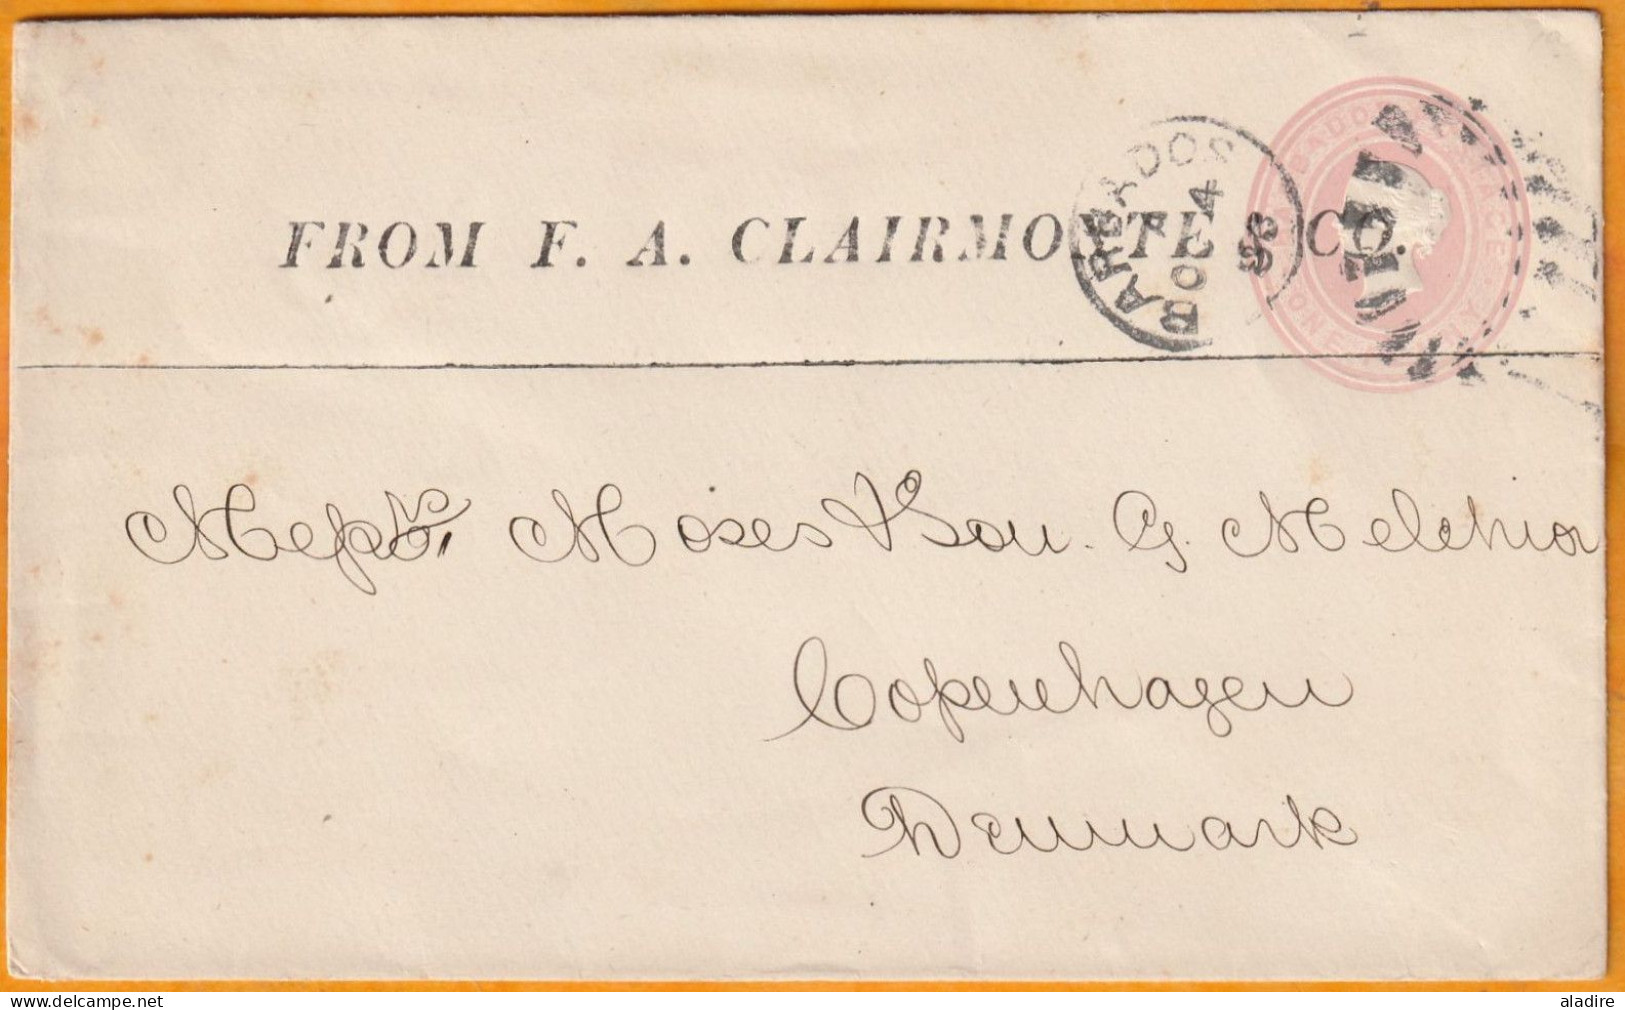 FROM F. A. CLAIRMONTE & CO.
BARBADOS
DO 4
98
Messrs. Moses & Son. G. Melchior
Copenhagen
Denmark
aladire